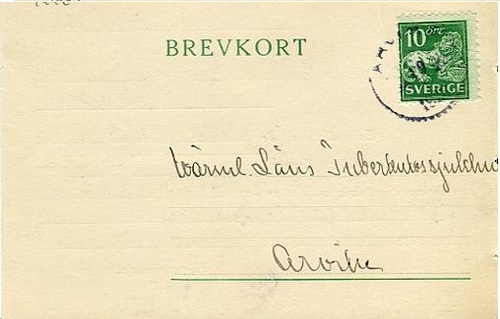 BREVKORT
10 öre
SVERIGE
Wärml. Läns Tuberkulossjukhus
Arvika